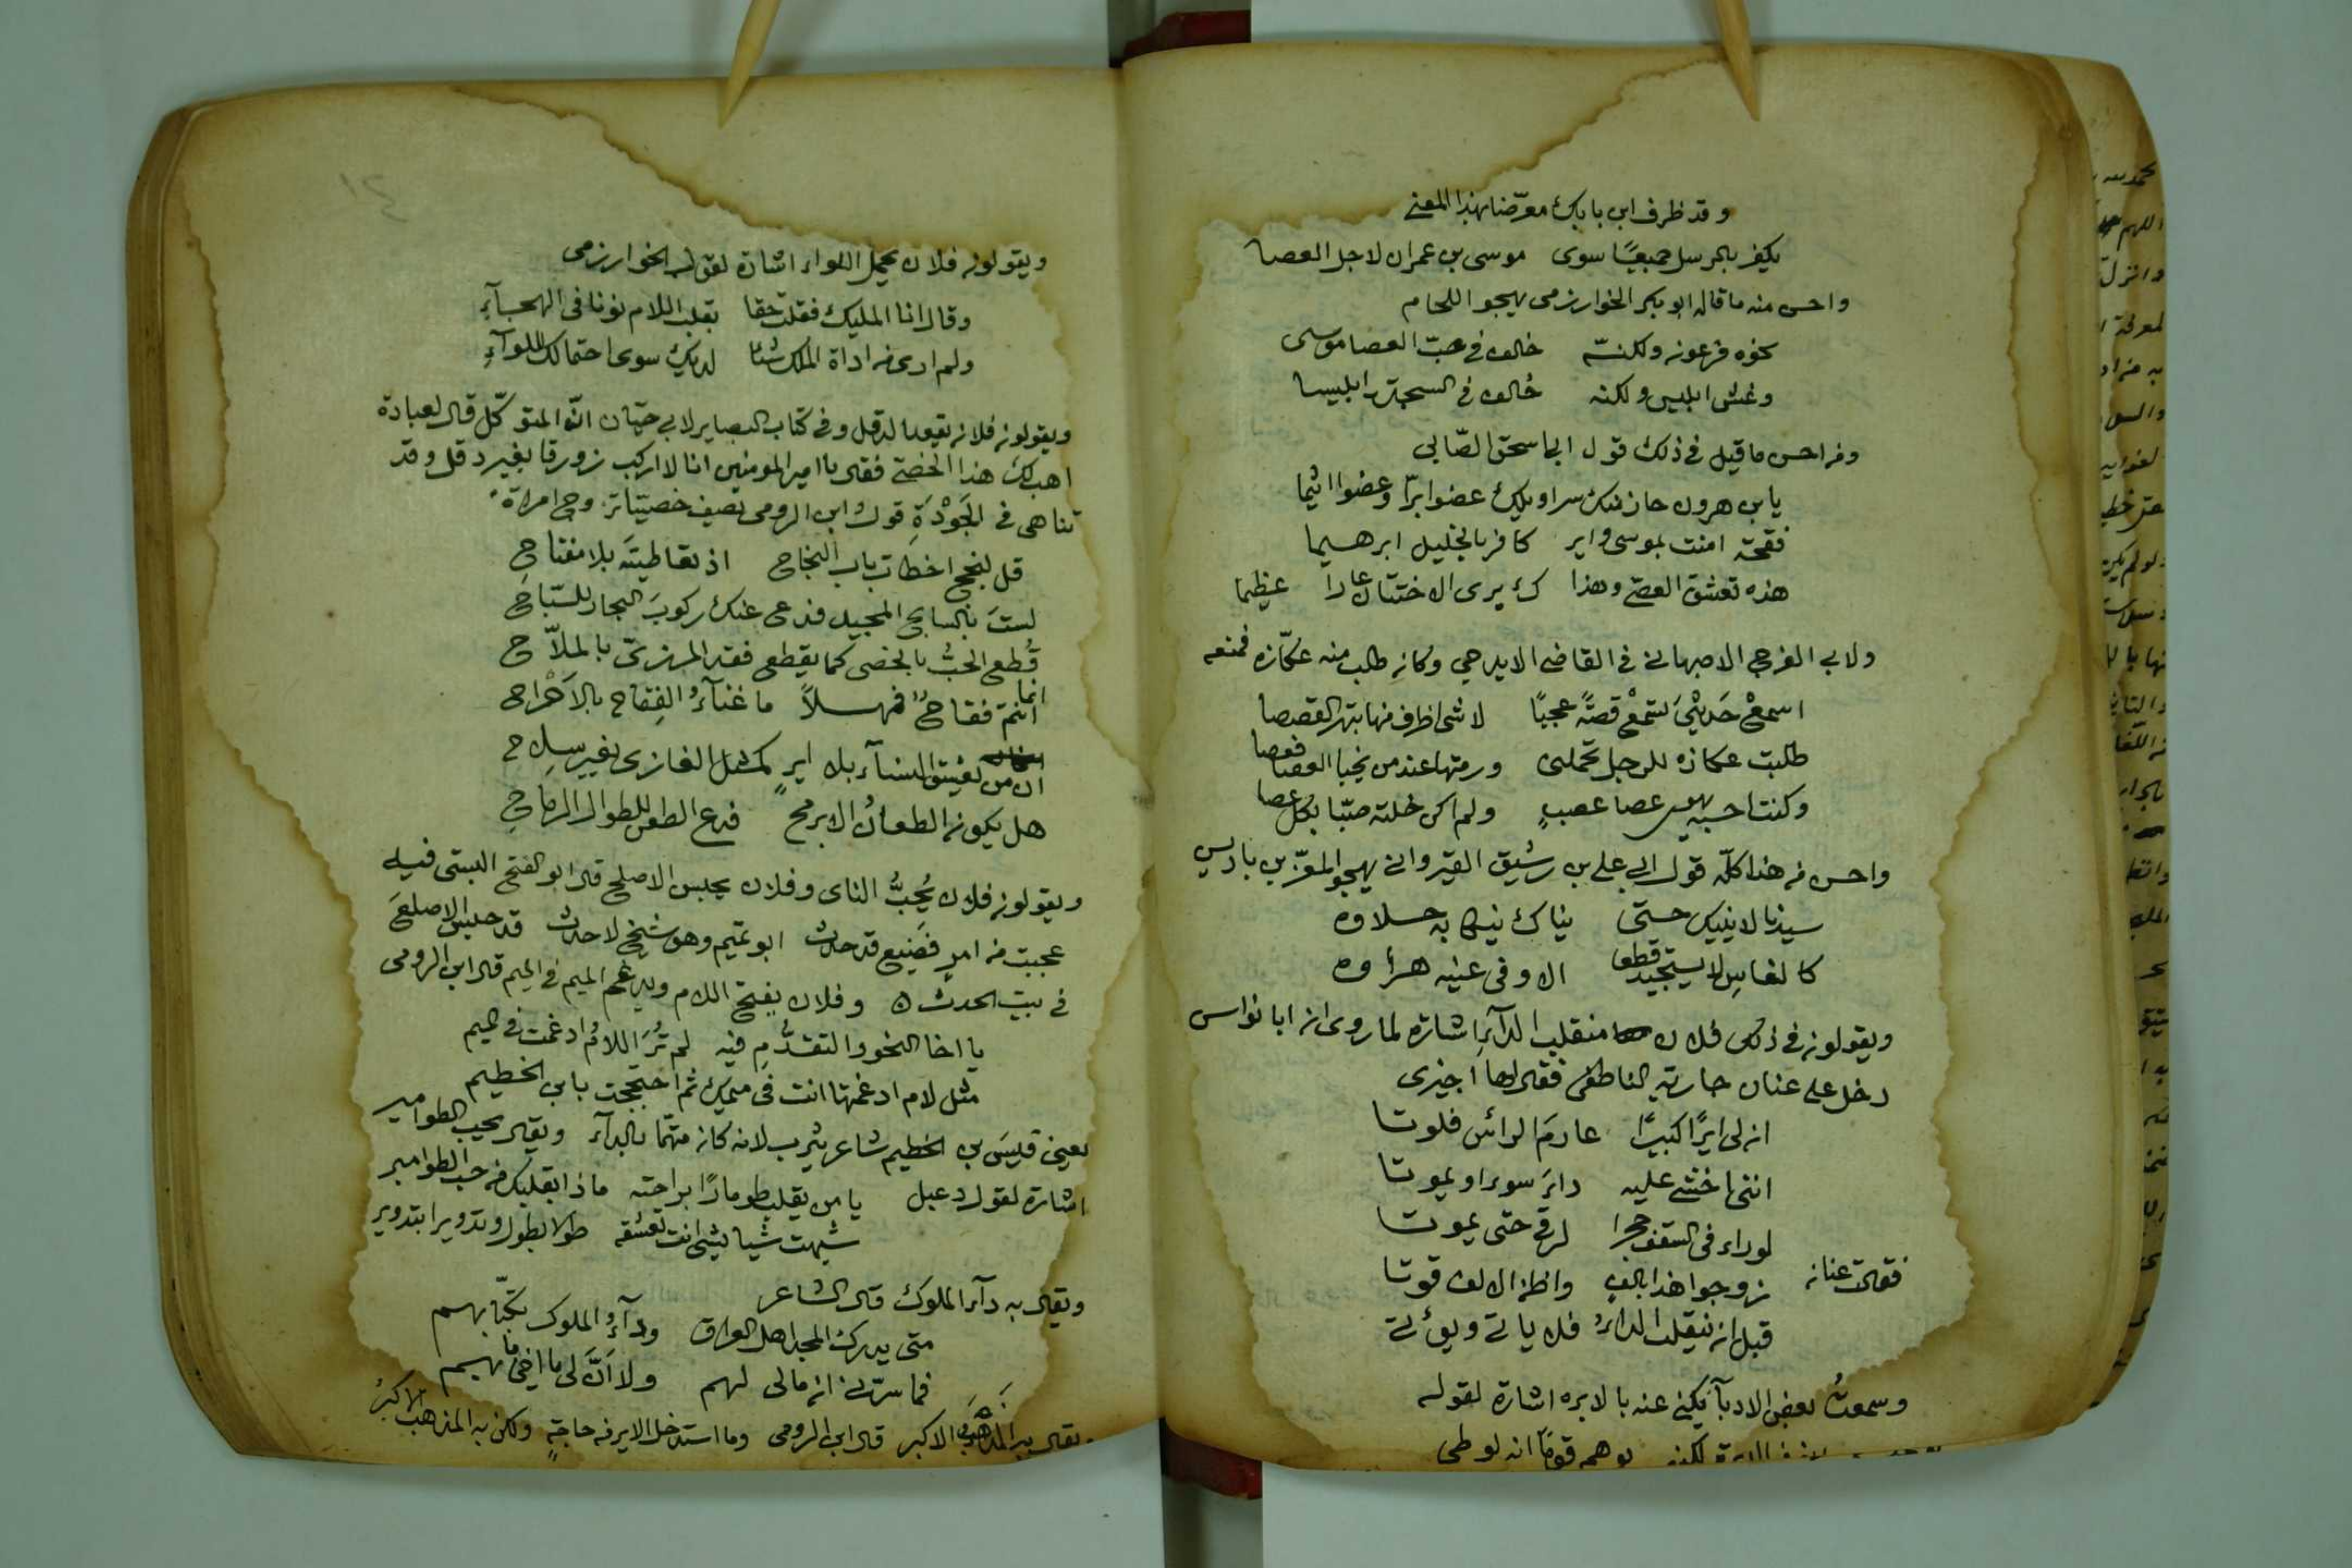 وقد ظرف ابن بابك معرّضا بهذا المعنى
يكفر بالرسل جميعًا سوى موسى بن عمران لاجل العصا
واحسن منه ما قاله ابو بكر الخوارزمى يهجو اللحام
كفره فرعون ولكنّه خالف فى حبّ العصا موسى
وغش ابليس ولكنه خالف فى السجدة ابليسا
ومن احسن ما قيل فى ذلك قول ابى اسحق الصّابى
يا بن هرون حاز منك سراويلك عضوا برّا وعضوا اثيما
فقحة امنت بموسى واير كافر بالخليل ابرهيما
هذه تعشق العصى وهذا ك يرى الاختتان عارا عظيما
ولابى الفرج الاصبهانى فى القاضى الايدجى وكان طلب منه عكّازه فمنعه
اسمعْ حَديثى تسمعْ قصّةً عجبًا لا شى اظرف منها تبهر القصصا
طلبت عكازه للرجل تحملنى ورمتها عند من يخبا العصا فعصا
وكنت احسبه يهوى عصا عصبٍ ولم اكن خلته صبّا بكل عصا
واحسن من هذا كلّه قول ابى على بن رشيق القيروانى يهجو المعزّ بن باديس
سيدنا لا ينيك حتى يناك نيكا به حلاوه
كالفاس لا يستجيد قطعا الا وفى عينه هراوه
ويقولون فى ذلك فلان منقلب الدآءِ اشارة لما روى ان ابا نواس
دخل على عنان جارية الناطفى فقال لها اجيزى
ان لى ايرًا كبيرًا عارمَ الراس فلوتا
اننى اخشى عليه داءَ سوء او يموتا
لو راى فى السقف جحرا لرقى حتى يموتا
فقالت عنان زوجوا هذا بالف واظن الالف قوتا
قبل ان ينقلب الداءُ فلا ياتى ويؤتى
وسمعتُ بعض الادبآ يكنى عنه بالابره اشارة لقوله
الابرة لكنه يوهم قومًا انه لوطى
ويقولون فلان يحمل اللواء اشارة لقول الخوارزمى
وقال انا المليك فقلت حقا بقلب اللام نونا فى الهجآءِ
ولم ارى من اداة الملك شئا لديك سوى احتمالك للوآءِ
ويقولون فلان يقود الدقل وفى كتاب البصاير لابى حيّان انّ المتوكّل قال لعبادة
اهب لك هذا الخصى فقال يا امير المومنين انا لا اركب زورقا بغير دقل وقد
تناهى فى الجَوْدَةِ قول ابن الرومى يصف خصيّا تزوج امراة
قل لنجح اخطات باب النجاح اذ تعاطيتَه بلا مفتاحِ
لستَ بالسابح المجيد فدعى عنك ركوبَ البحار للسّباحِ
قُطع الحبُّ بالخصى كما يقطع فقد المردىّ بالملاّح
انما انتم فقاحٌ فمهلاً ما غنآءُ الفقاح بالاَحْراح
ان من يغتق النسآء بلا ايرٍ كمثل الغازى بغير سِلاح
هل يكون الطعانُ الا برمحٍ فدع الطعن للطوال الرماحِ
ويقولون فلان يُحِبُّ الناى وفلان يجلس الاصلع قال ابو الفتح البستى فيه
عجبت من امرٍ فضيع قد حدث ابو تميم وهو شيخ لا حدث قد حبس الاصلعَ
فى بيت الحدث ٥ وفلان يفتح اللام ويدغم الميم فى الميم قال ابن الرومى
يا اخا النحو والتقدُّمِ فيه لم تُرَ اللامُ ادغمت فى الميم
مثل لام ادغمتها انت فى ميمك ثم احتججت بابن الخطيم
يعنى قيس بن الخطيم شاعر يثرب لانه كان متهّما بالدآء ويقال يحب الطوامير
اشارة لقول دعبل يا من يقلب طومارًا براحته ماذا بقلبك من حب الطوامير
شبهت شيا بشى انت تعشقه طولا بطول وتدويرا بتدوير
ويقال به دآء الملوك قال الشاعر
متى يدرك المجد اهل العراق ودآءُ الملوك بكتّابهم
فما سرّنى ان مالى لهم ولا انَّ لى ما بهم
ويقال يرى المذهب الاكبر قال ابن الرومى وما استدخل الاير من حاجةٍ ولكن به المذهب الاكبرُ